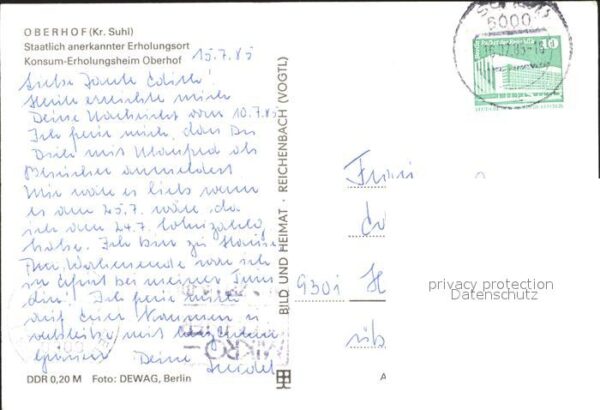 OBERHOF (Kr. Suhl)
Staatlich anerkannter Erholungsort
Konsum-Erholungsheim Oberhof
15.7.85
Liebe Tante Edith!
Heute erreichte mich
Deine Nachricht vom 10.7.85
Ich freue mich, dass Du
Dich mit Manfred als
Besucher anmeldest
Mir wäre es lieb wenn
es am 25.7. wäre, da
ich am 24.7. Lohnzahlg
habe. Ich bin zu Hause
Wochenende war ich
in Erfurt bei meiner
Ich freue mich
auf Euer Kommen u
verbleibe mit
Grüssen Deine
DDR 0,20 M Foto: DEWAG, Berlin
BILD UND HEIMAT · REICHENBACH (VOGTL)
6000
10
Frau
9301 H
privacy protection
Datenschutz
A